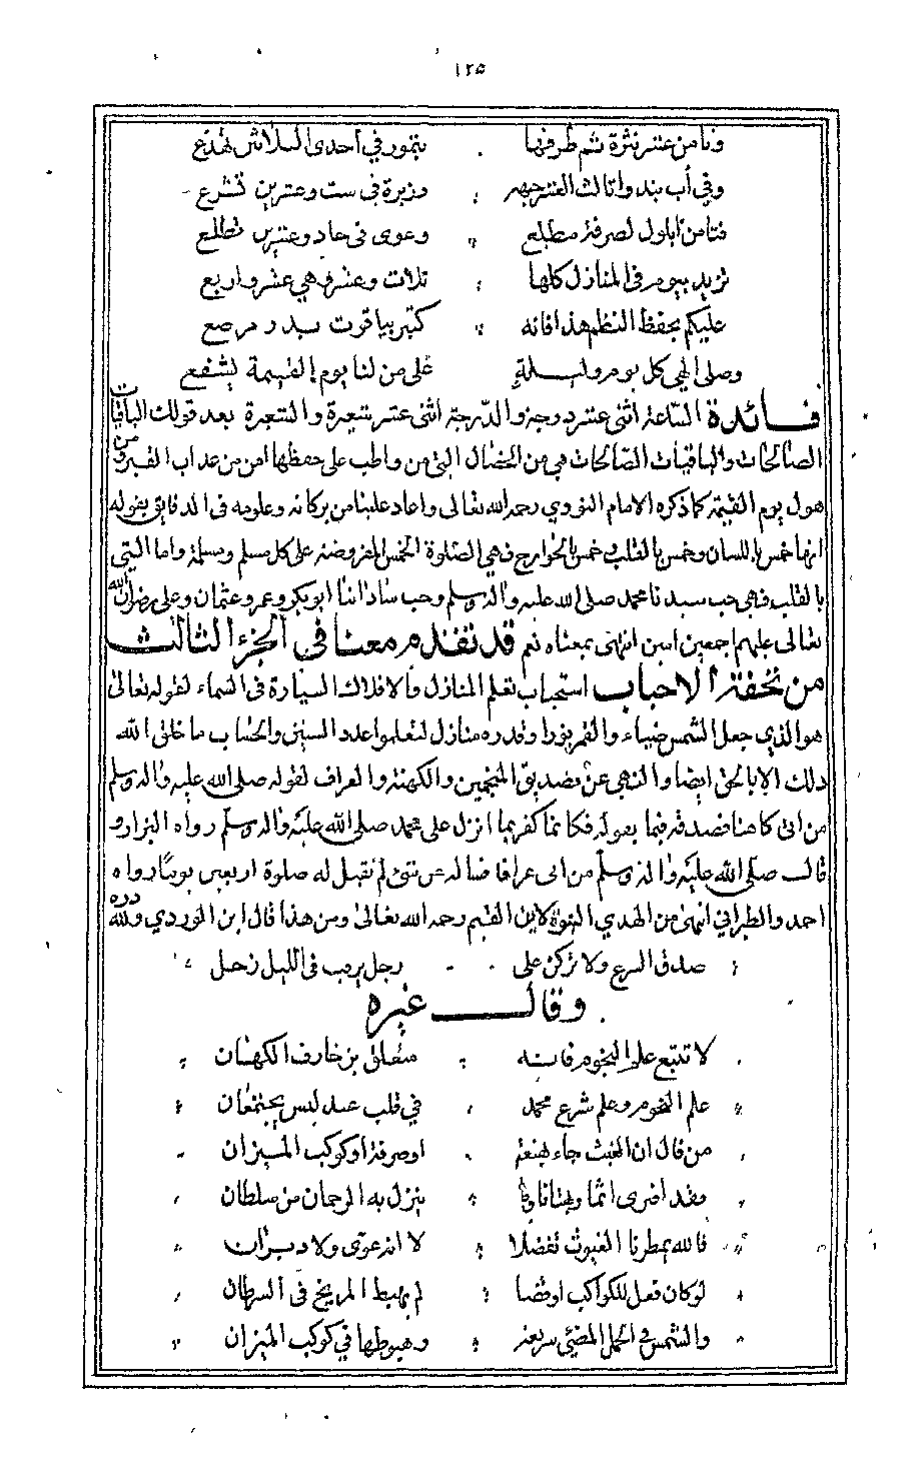 ١٢٥
وثامن عشر نثرة ثم طرفها بتموز في أحدى الثلاثين تهدع
وفي أب بند واثالث العشر جبهه وزبرة في ست وعشرين تشرع
فثامن أيلول لصرفة مطلع وعوى في حاد وعشرين تطلع
تزيد بيوم في المنازل كلها ثلاث وعشر وهي عشر واربع
عليكم بحفظ النظم هذا فانه كتبر بياقوت بدر مرصع
وصلى الهي كل يوم وليلة على من لنا يوم القيمة يشفع
فائدة الساعة اثنى عشر درجة والدرجة اثنى عشر شعيرة والشعيرة بعد قولك الباقيات
الصالحات والباقيات الصالحات هي من الخصال التي من واظب على حفظها امن من عذاب القبر ومن
هول يوم القيمة كما ذكره الامام النووي رحمه الله تعالى واعاد علينا من بركاته وعلومه في الدقايق بقوله
انها خمس باللسان وخمس بالقلب وخمس بالجوارح فهي الصلوة الخمس المفروضة على كل مسلم ومسلمة واما التي
بالقلب فهي حب سيدنا محمد صلى الله عليه واله وسلم وحب ساداتنا ابو بكر وعمر وعثمان وعلي رضوان الله
تعالى عليهم اجمعين امين انتهى بمعناه نعم قد تقدم معنا في الجزء الثالث
من تحفة الاحباب استحباب تعلم المنازل والافلاك السيارة في السماء لقوله تعالى
هو الذي جعل الشمس ضياء والقمر نورا وقدره منازل لتعلموا عدد السنين والحساب ما خلق الله
ذلك الا بالحق ايضا والنهي عن تصديق المنجمين والكهنة والعراف لقوله صلى الله عليه واله وسلم
من اتى كاهنا فصدقه فيما يقوله فكانما كفر بما انزل على محمد صلى الله عليه واله وسلم رواه البزار و
قال صلى الله عليه واله وسلم من اتى عرافا فساله عن شئ لم تقبل له صلوة اربعين يوما رواه
احمد والطبراني انتهى من الهدي النبوة لابن القيم رحمه الله تعالى ومن هذا قال ابن الوردي ولله دره
صدق الشرع ولا تركن على رجل يرصد في الليل زحل
وقال غيره
لا تتبع علم النجوم فانه متعلق بزخارف الكهان
علم النجوم وعلم شرع محمد في قلب عبد ليس يجتمعان
من قال ان الغيث جاء بهنعة او صرفة او كوكب الميزان
فقد افترى اثما وبهتانا ولم ينزل به الرحمان من سلطان
فالله يمطرنا الغيوث تفضلا لا انه عوى ولا دبران
لو كان فعل للكواكب او قضا لم يهبط المريخ في السرطان
والشمس في الحمل المضيئ سريعة وهبوطها في كوكب الميزان